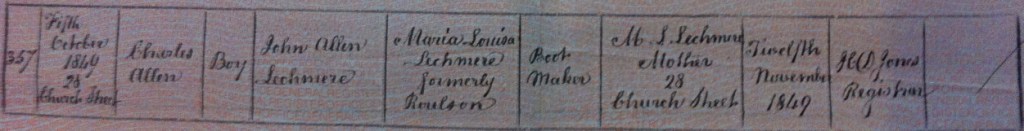 357
Fifth
October
1849
28
Church Street
Charles
Allen
Boy
John Allen
Lechmere
Maria Louisa
Lechmere
formerly
Roulson
Boot
Maker
M. L. Lechmere
Mother
28
Church Street
Twelfth
November
1849
Jones
Registrar